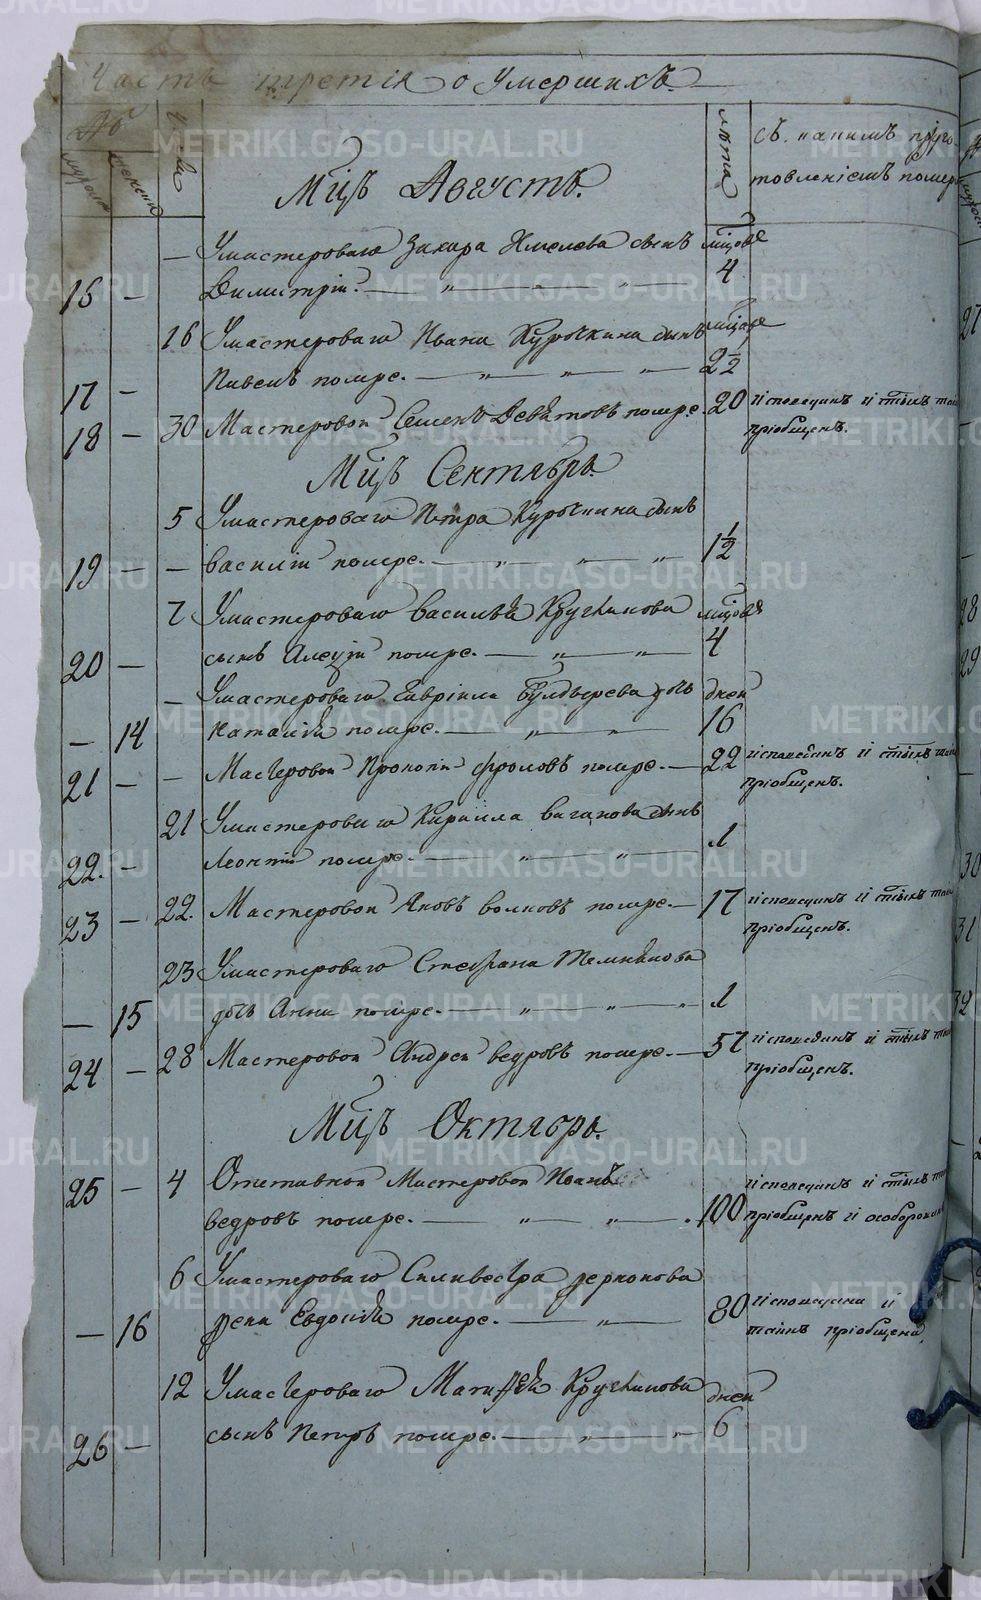 Часть третія о умершихъ.
№
мужеск женска
лѣта
съ какимъ пріуго
товленіемъ помер
Мцъ Августъ.
— Умастероваго Захара Хмелева сынъ мцовъ
16 — Димитрій. — „ — „ — „ 4
16 Умастероваго Ивана Курочкина сынъ мцовъ
17 — Павелъ помре. — „ — „ — „ 2½
18 — 30 Мастеровой Семенъ Девятовъ помре. 20 исповеданъ и стыхъ таи
пріобщенъ.
Мцъ Сентябрь.
5 Умастероваго Петра Курочкина сынъ
19 — — василій помре. — „ — „ — „ 1½
7 Умастероваго василья Кручинова мцовъ
20 — сынъ Алеѯій помре. — „ — „ 4
— Умастероваго Гавріила Булдырева дочь дней
— 14 Наталія помре. — „ — „ 16
21 — — Мастеровой Прокопій фроловъ помре. — 22 исповеданъ и стыхъ таи
пріобщенъ.
21 Умастероваго Кирилла ваганова сынъ
22. — Леонтій помре. — „ — „ — 1
23 — 22. Мастеровой Яковъ волковъ помре. — 17 исповеданъ и стыхъ таи
пріобщенъ.
23 Умастероваго Стефана Темникова
— 15 дочь Анна помре. — „ — „ — „ 1
24 — 28 Мастеровой Андрей ведровъ помре. — 57 исповеданъ и стыхъ таи
пріобщенъ.
Мцъ Октябрь.
25 — 4 Отставной Мастеровой Иванъ исповеданъ и стыхъ таи
ведровъ помре. — „ — „ — . 100 пріобщенъ и особорованъ
6 Умастероваго Силивестра
— 16 жена Евдокія помре. — „ — 80 исповедана и
таинъ пріобщена.
12 Умастероваго Матфея Кручинова дней
26 — сынъ Петръ помре. — „ — „ 6
METRIKI.GASO-URAL.RU